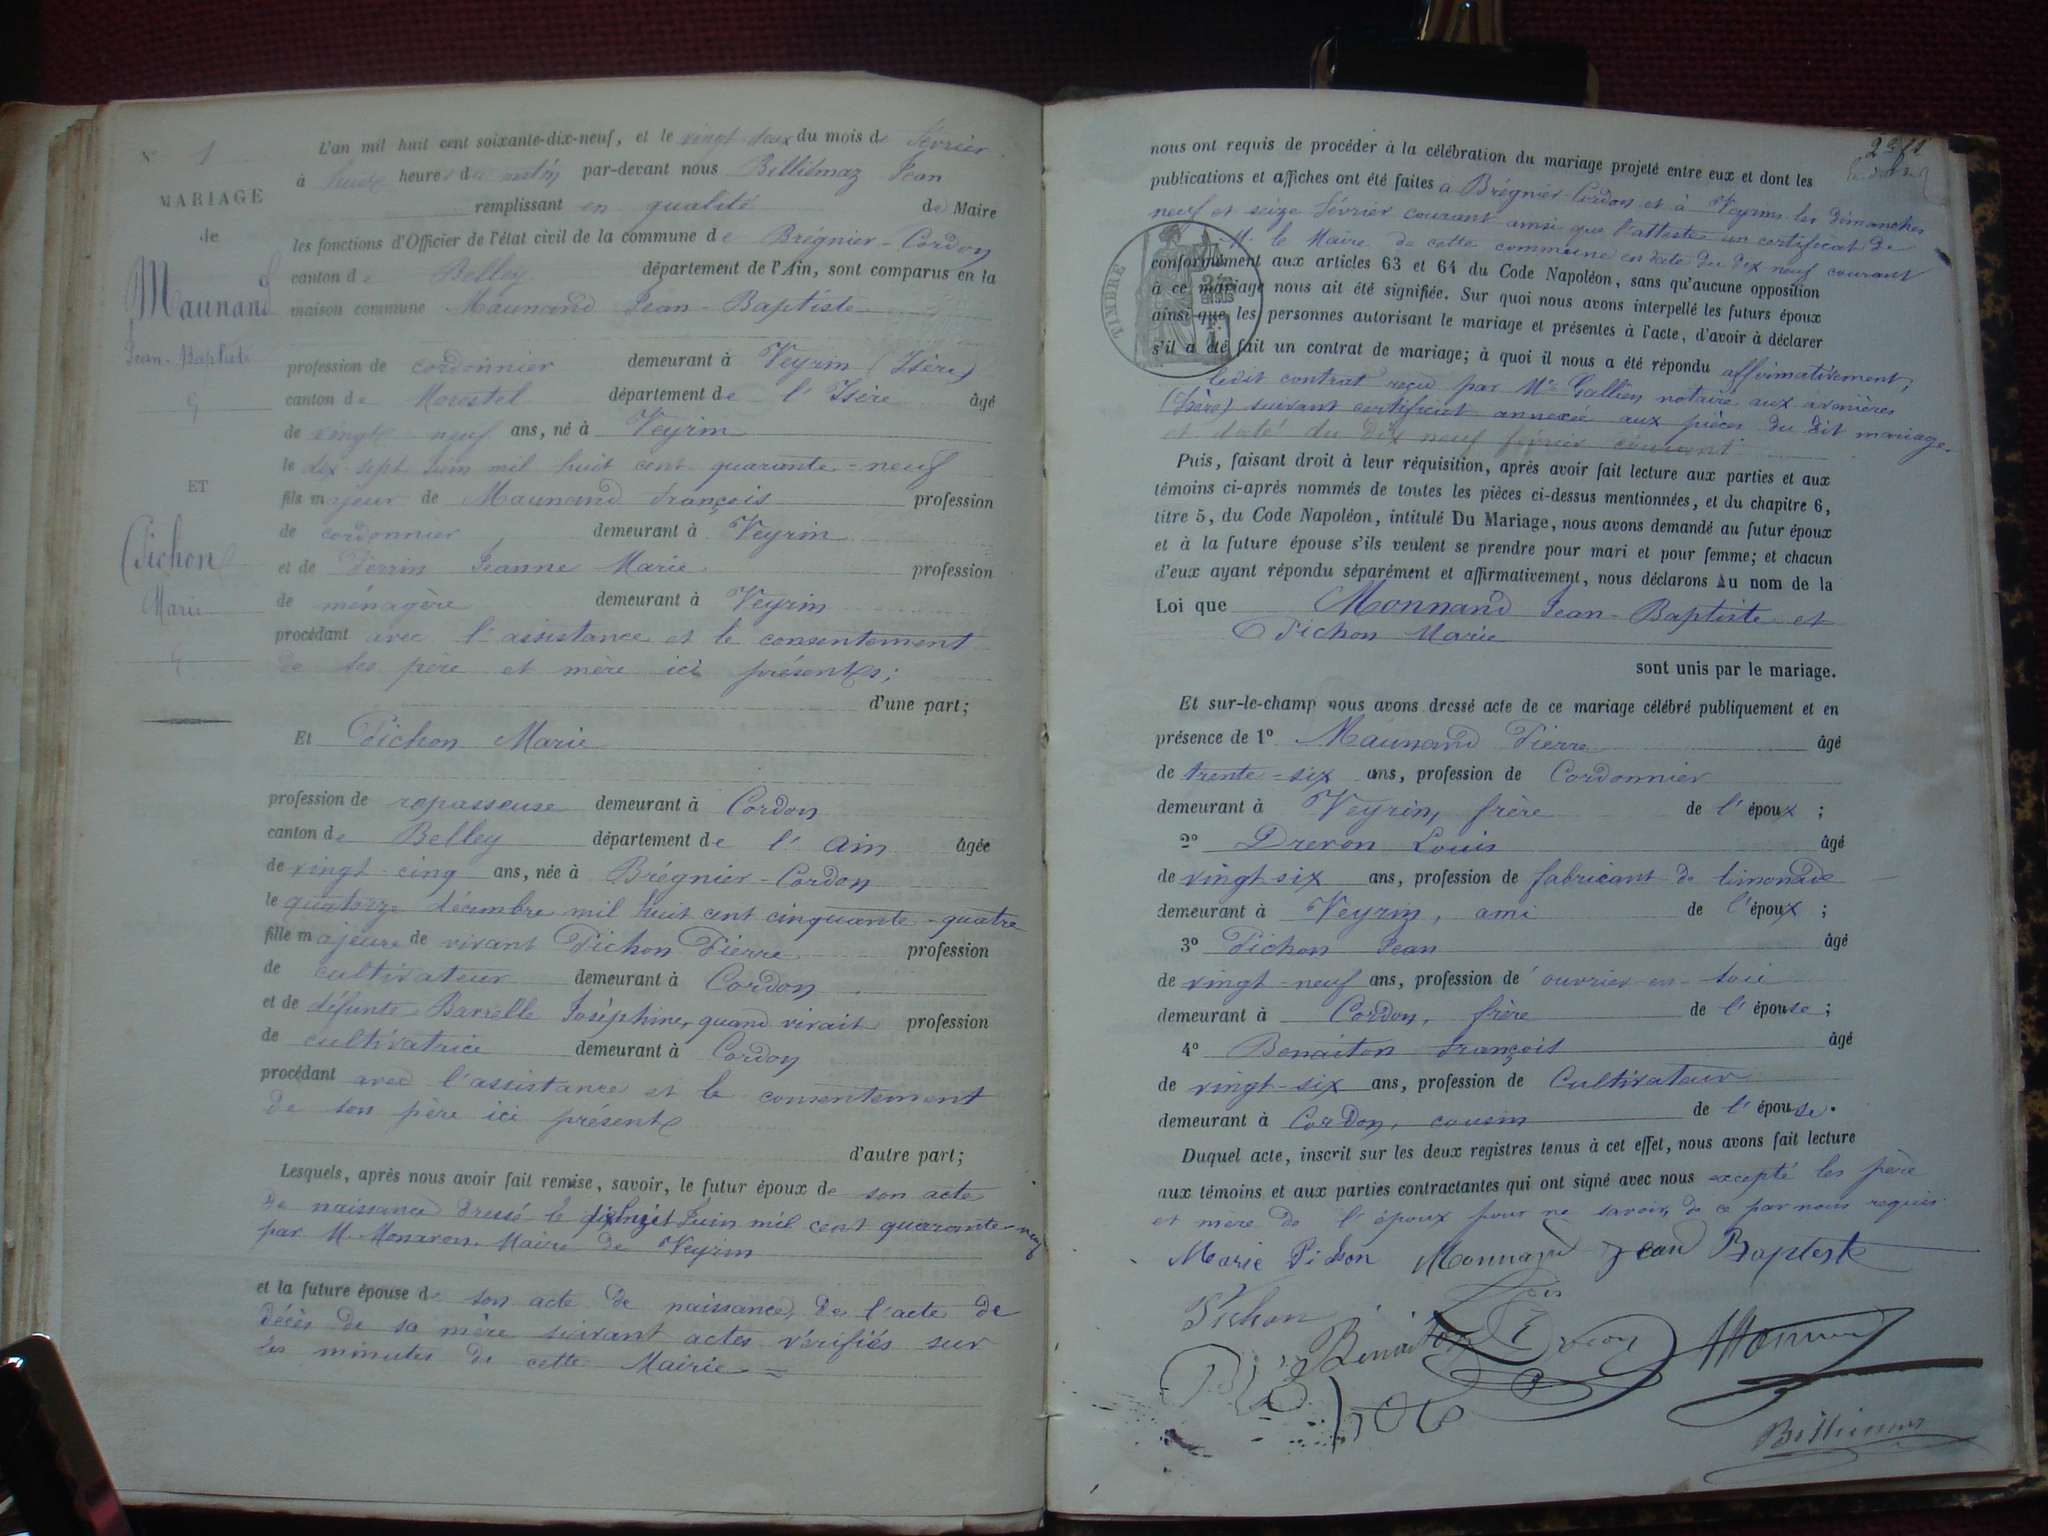 N° 1
MARIAGE
de
Maunand
Jean-Baptiste
ET
Pichon
Marie
L'an mil huit cent soixante-dix-neuf, et le vingt deux du mois de février
à huit heures du matin par-devant nous Belliémaz Jean
remplissant en qualité de Maire
les fonctions d'Officier de l'état civil de la commune de Brégnier-Cordon
canton de Belley département de l'Ain, sont comparus en la
maison commune Maunand Jean-Baptiste
profession de cordonnier demeurant à Veyrin (Isère)
canton de Morestel département de l'Isère âgé
de vingt neuf ans, né à Veyrin
le dix sept Juin mil huit cent quarante-neuf
fils majeur de Maunand françois profession
de cordonnier demeurant à Veyrin
et de Perrin Jeanne Marie profession
de ménagère demeurant à Veyrin
procédant avec l'assistance et le consentement
de ses père et mère ici présents;
d'une part;
Et Pichon Marie
profession de repasseuse demeurant à Cordon
canton de Belley département de l'Ain âgée
de vingt cinq ans, née à Brégnier-Cordon
le quatorze décembre mil huit cent cinquante-quatre
fille majeure de vivant Pichon Pierre profession
de cultivateur demeurant à Cordon
et de défunte Barrelle Joséphine, quand vivait profession
de cultivatrice demeurant à Cordon
procédant avec l'assistance et le consentement
de son père ici présent
d'autre part;
Lesquels, après nous avoir fait remise, savoir, le futur époux de son acte
de naissance dressé le Juin mil cent quarante-neuf
par M. Monaron Maire de Veyrin
et la future épouse de son acte de naissance, de l'acte de
décès de sa mère suivant actes vérifiés sur
les minutes de cette Mairie =
nous ont requis de procéder à la célébration du mariage projeté entre eux et dont les
publications et affiches ont été faites à Brégnier-Cordon et à Veyrin les dimanches
neuf et seize février courant ainsi que l'atteste un certificat de
M. le Maire de cette commune en date du dix neuf courant
conformément aux articles 63 et 64 du Code Napoléon, sans qu'aucune opposition
à ce mariage nous ait été signifiée. Sur quoi nous avons interpellé les futurs époux
ainsi que les personnes autorisant le mariage et présentes à l'acte, d'avoir à déclarer
s'il a été fait un contrat de mariage; à quoi il nous a été répondu affirmativement,
ledit contrat reçu par Me Gallien notaire aux avenières
(Isère) suivant certificat annexée aux pièces du dit mariage.
et daté du dix neuf février courant
TIMBRE
Puis, faisant droit à leur réquisition, après avoir fait lecture aux parties et aux
témoins ci-après nommés de toutes les pièces ci-dessus mentionnées, et du chapitre 6,
titre 5, du Code Napoléon, intitulé Du Mariage, nous avons demandé au futur époux
et à la future épouse s'ils veulent se prendre pour mari et pour femme; et chacun
d'eux ayant répondu séparément et affirmativement, nous déclarons Au nom de la
Loi que Monnand Jean-Baptiste et
Pichon Marie
sont unis par le mariage.
Et sur-le-champ nous avons dressé acte de ce mariage célébré publiquement et en
présence de 1° Maunand Pierre âgé
de trente-six ans, profession de Cordonnier
demeurant à Veyrin, frère de l'époux ;
2° Drevon Louis âgé
de vingt-six ans, profession de fabricant de limonade
demeurant à Veyrin, ami de l'époux ;
3° Pichon Jean âgé
de vingt-neuf ans, profession d'ouvrier-en-soie
demeurant à Cordon, frère de l'épouse ;
4° Benaiton françois âgé
de vingt-six ans, profession de Cultivateur
demeurant à Cordon, cousin de l'épouse.
Duquel acte, inscrit sur les deux registres tenus à cet effet, nous avons fait lecture
aux témoins et aux parties contractantes qui ont signé avec nous excepté les père
et mère de l'époux pour ne savoir, de ce par nous requis
Marie Pichon Monnand Jean Baptiste
Pichon
Benaiton